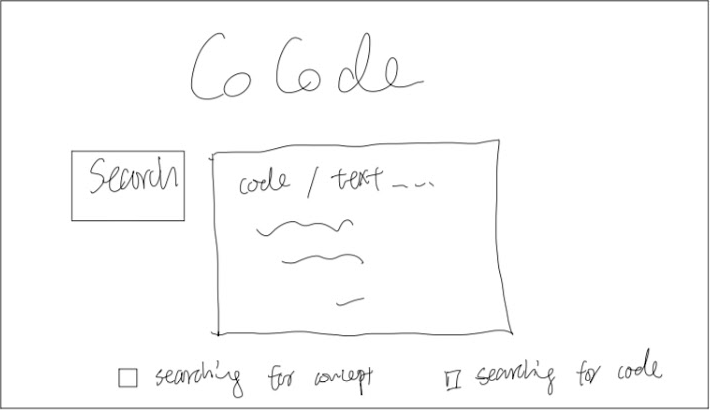 CoCode
Search
code / text ---
searching for concept
searching for code